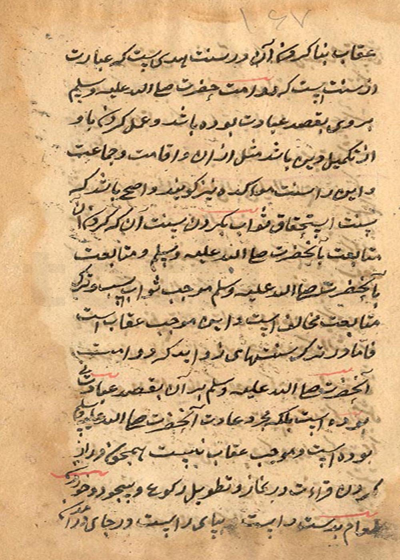 ۱۶۷
عقاب بنا کردن آن و در سنت هدی است که عبارت
از سنت است که دوامت حضرت صلی الله علیه وسلم
بروی بقصد عبادت بوده باشد و عمل کردن باو
از تکمیل دین باشد مثل اذان و اقامت و جماعت
و این را سنت موکده نیز کویند و واضح باشد که
سنت استحقاق ثواب بکردن سنت آن که کردن
متابعت بآنحضرت صلی الله علیه وسلم و متابعت
بآنحضرت صلی الله علیه وسلم موجب ثواب است و ترک
متابعت مخالف است و این موجب عقاب است
فاما در ترک سنتهای زواید که دوامت
آنحضرت صلی الله علیه وسلم بر آن بقصد عبادت
بوده است بلکه بر عادت آنحضرت صلی الله علیه
بوده است و موجب عقاب نیست همچون دراز
کردن قراءت در نماز و تطویل رکوع و سجود و چون
دست راست پای راست در جای